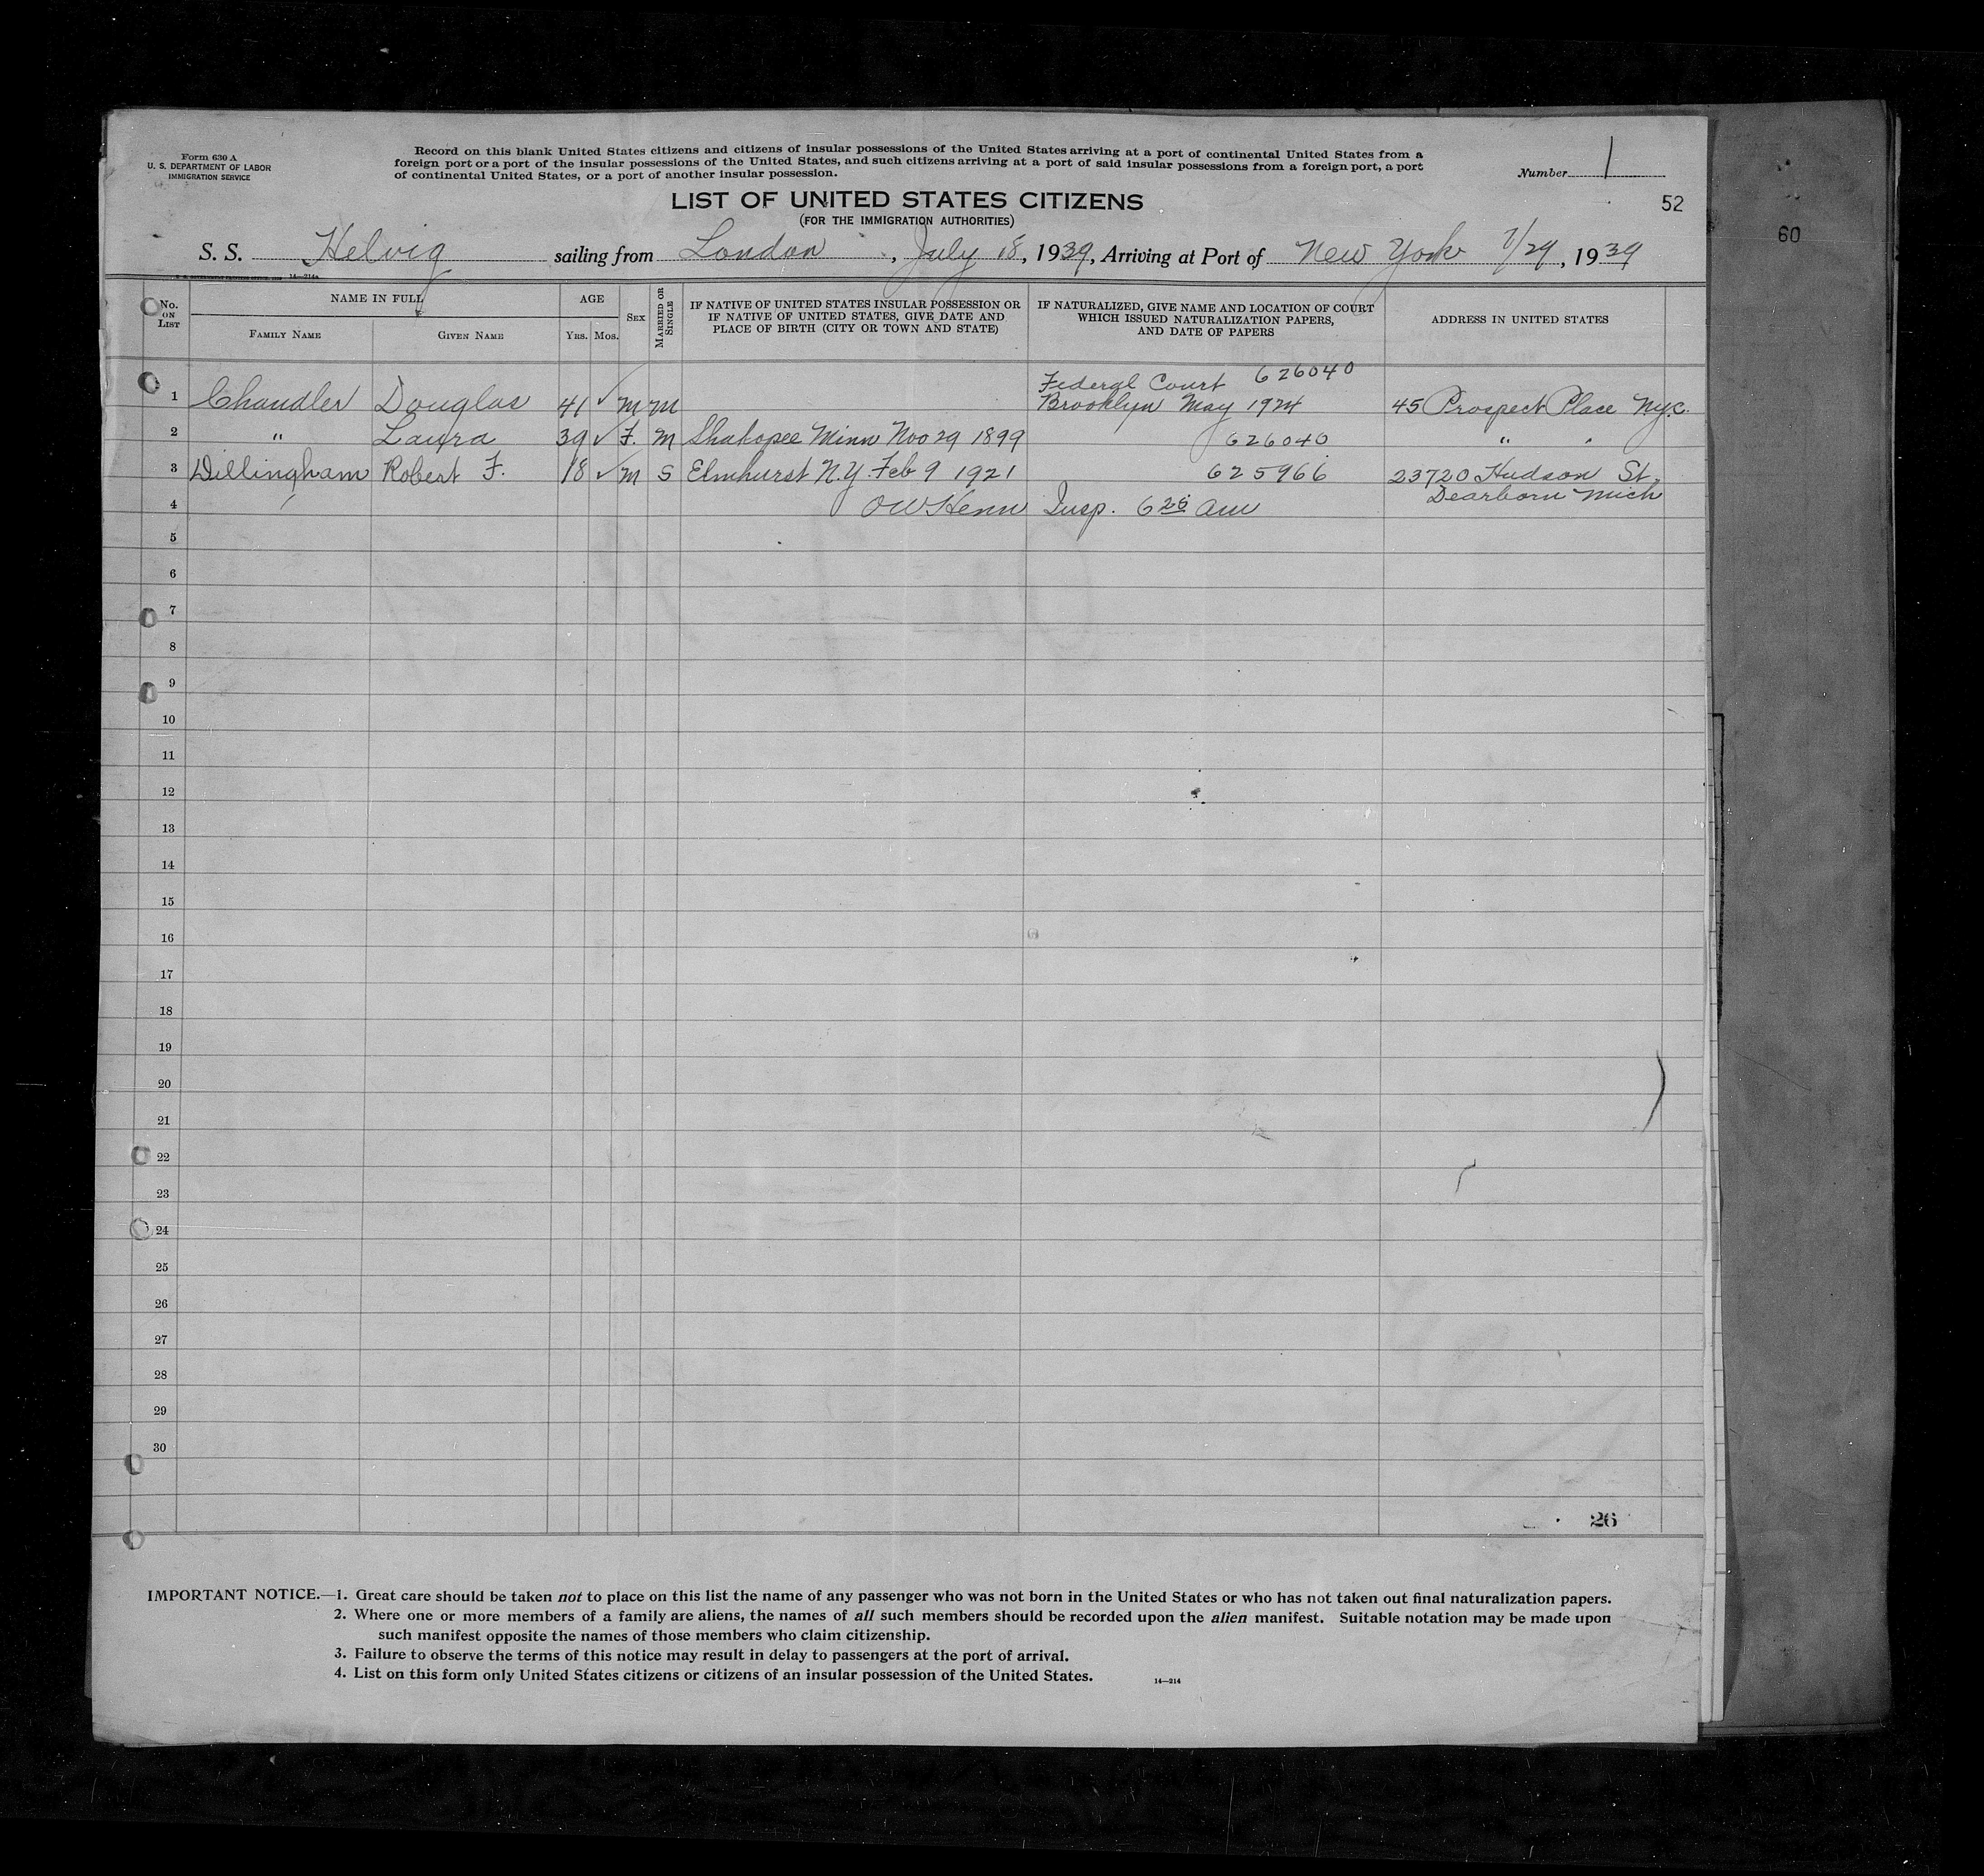 Form 630 A
U. S. DEPARTMENT OF LABOR
IMMIGRATION SERVICE
Record on this blank United States citizens and citizens of insular possessions of the United States arriving at a port of continental United States from a
foreign port or a port of the insular possessions of the United States, and such citizens arriving at a port of said insular possessions from a foreign port, a port
of continental United States, or a port of another insular possession.
Number 1
52
60
LIST OF UNITED STATES CITIZENS
(FOR THE IMMIGRATION AUTHORITIES)
S. S. Helvig sailing from London, July 18, 1939, Arriving at Port of New York 7/29, 1939
14—214a
No. ON LIST
NAME IN FULL
FAMILY NAME
GIVEN NAME
AGE
YRS. MOS.
SEX
MARRIED OR SINGLE
IF NATIVE OF UNITED STATES INSULAR POSSESSION OR
IF NATIVE OF UNITED STATES, GIVE DATE AND
PLACE OF BIRTH (CITY OR TOWN AND STATE)
IF NATURALIZED, GIVE NAME AND LOCATION OF COURT
WHICH ISSUED NATURALIZATION PAPERS,
AND DATE OF PAPERS
ADDRESS IN UNITED STATES
Federal Court 626040
1 Chandler Douglas 41 ✓ M M Brooklyn May 1924 45 Prospect Place N.Y.C.
2 " Laura 39 ✓ F. M Shakopee Minn Nov 29 1899 626040 "
3 Dillingham Robert F. 18 ✓ M S Elmhurst N.Y. Feb 9 1921 625966 23720 Hudson St.
Dearborn Mich
4 OW Henn Insp. 6 25 am
5
6
7
8
9
10
11
12
13
14
15
16
17
18
19
20
21
22
23
24
25
26
27
28
29
30
26
IMPORTANT NOTICE.—1. Great care should be taken not to place on this list the name of any passenger who was not born in the United States or who has not taken out final naturalization papers.
2. Where one or more members of a family are aliens, the names of all such members should be recorded upon the alien manifest. Suitable notation may be made upon
such manifest opposite the names of those members who claim citizenship.
3. Failure to observe the terms of this notice may result in delay to passengers at the port of arrival.
4. List on this form only United States citizens or citizens of an insular possession of the United States.
14—214